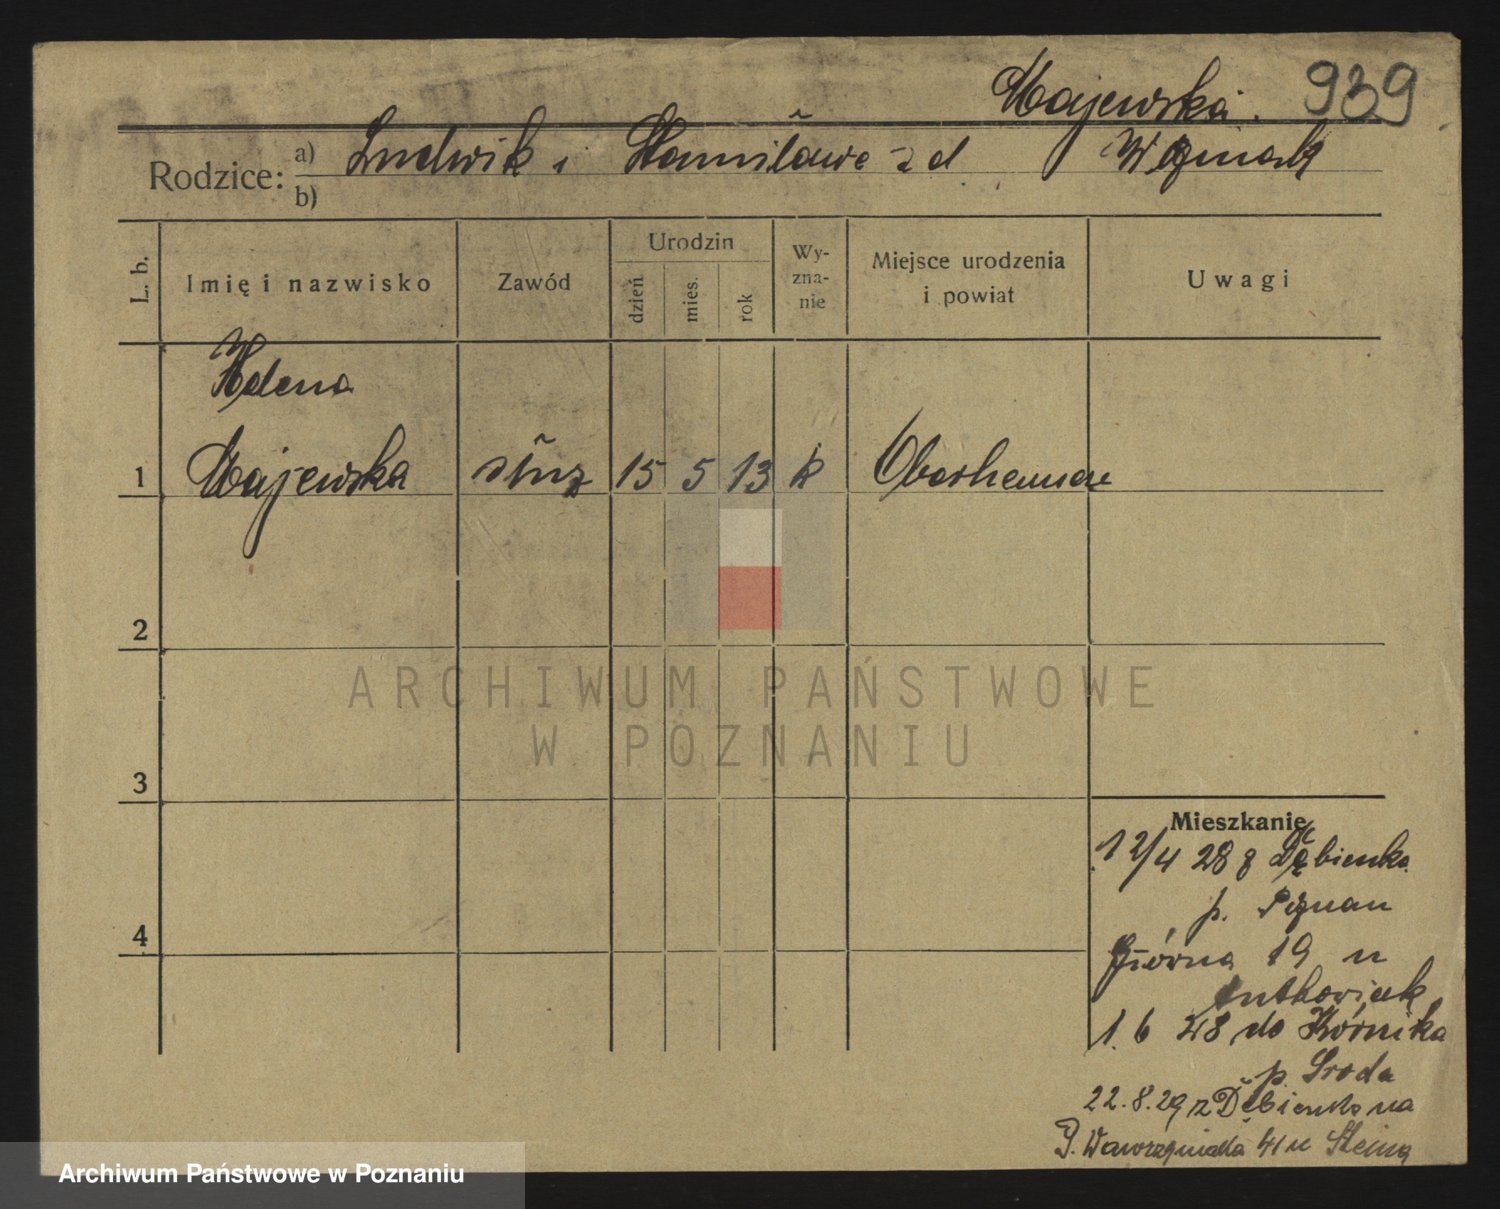 Majewska. 939
Rodzice: a) Ludwik i Stanisława z d
b)
L. b. Imię i nazwisko Zawód Urodzin dzień mies. rok Wy-zna-nie Miejsce urodzenia i powiat Uwagi
Helena
1 Majewska służ 15 5 13 k Oberhausen
2
3
4
Mieszkanie
12/4 28 z Dębienka
p. Poznań
Górna 19 u
1. 6 28 do Kórnika
p. Środa
22.8.29 z Dębienka na
41 u Steina
ARCHIWUM PAŃSTWOWE
W POZNANIU
Archiwum Państwowe w Poznaniu